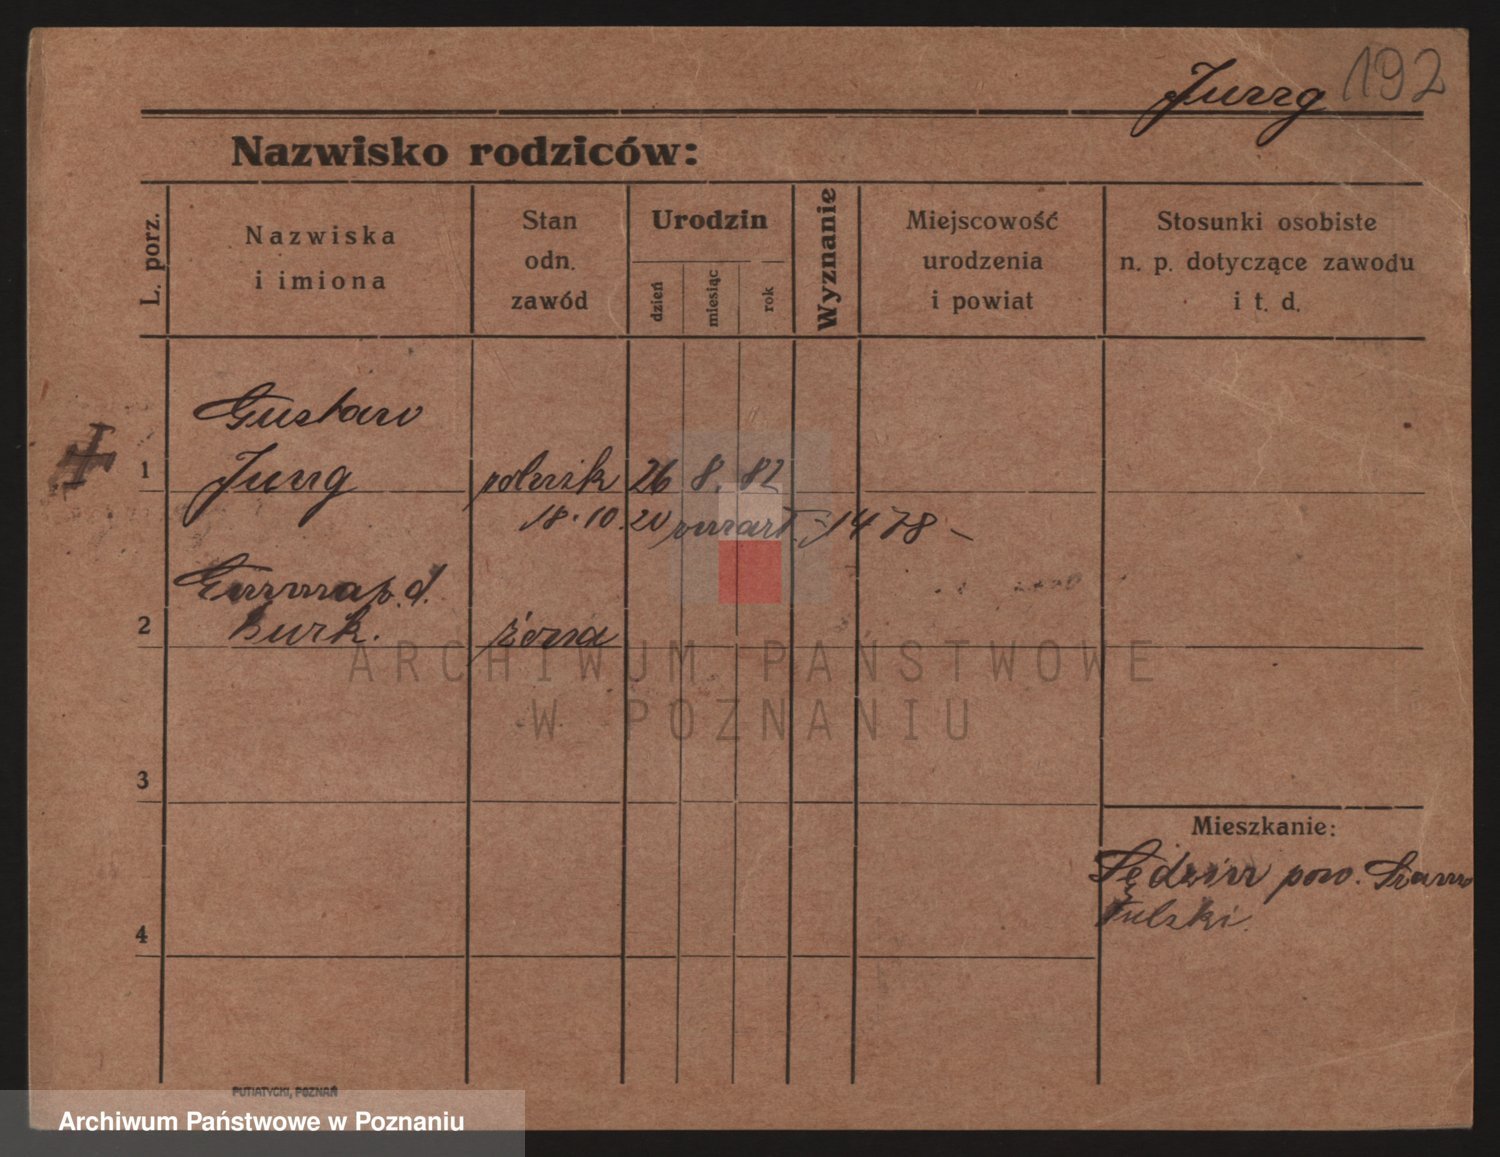 Jung 192
Nazwisko rodziców:
L. porz.
Nazwiska
i imiona
Stan
odn.
zawód
Urodzin
dzień
miesiąc
rok
Wyznanie
Miejscowość
urodzenia
i powiat
Stosunki osobiste
n. p. dotyczące zawodu
i t. d.
Gustaw
1 Jung polnik 26 8. 82
18.10.20 zmarł 1478
Emma p. d.
2 Burk. żona
3
4
Mieszkanie:
Sędzin pow.
ARCHIWUM PAŃSTWOWE
W POZNANIU
PUTIATYCKI, POZNAŃ
Archiwum Państwowe w Poznaniu